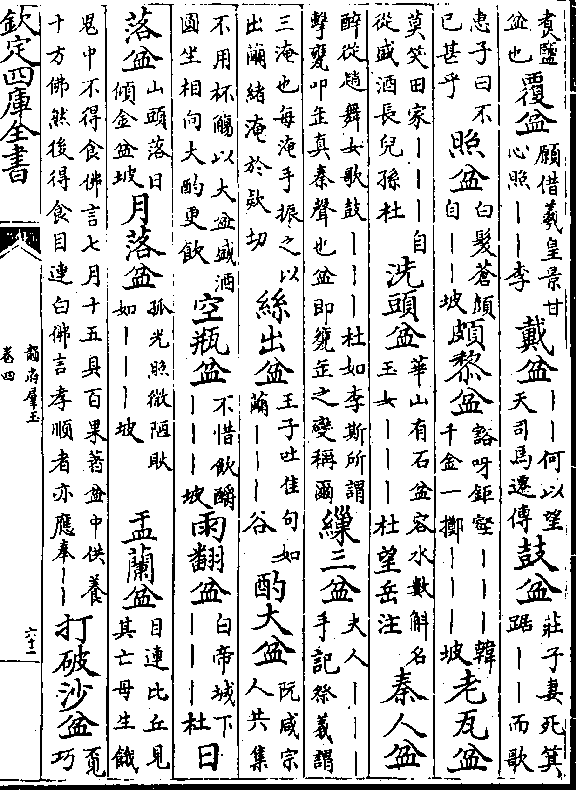 煮鹽盆也　覆盆　願借羲皇景甘心照——李　戴盆　——何以望天司馬遷傳　鼓盆　莊子妻死箕踞——而歌
惠子曰不已甚乎　照盆　白髮蒼顔自——坡　頗黎盆　谿呀鉅壑———韓千金一擲———坡　老瓦盆
莫笑田家———自從盛酒長兒孫杜　洗頭盆　華山有石盆容水數斛名玉女———杜望岳注　秦人盆
醉從趙舞女歌鼓———杜如李斯所謂擊甕叩缶真秦聲也盆即甕缶之變稱爾　繅三盆　夫人———手記祭義謂
三淹也每淹手振之以出繭緒淹於欵切　絲出盆　王子吐佳句如繭———谷　酌大盆　阮咸宗人共集
不用杯觴以大盆盛酒圓坐相向大酌更飲　空瓶盆　不惜飲釂———坡　雨翻盆　白帝城下———杜　日
落盆　山頭落日傾金盆坡　月落盆　孤光照微陋耿如———坡　盂蘭盆　目連比丘見其亡母生餓
鬼中不得食佛言七月十五具百果著盆中供養十方佛然後得食目連白佛言孝順者亦應奉——　打破沙盆　覔巧
欽定四庫全書
韻府羣玉
卷四